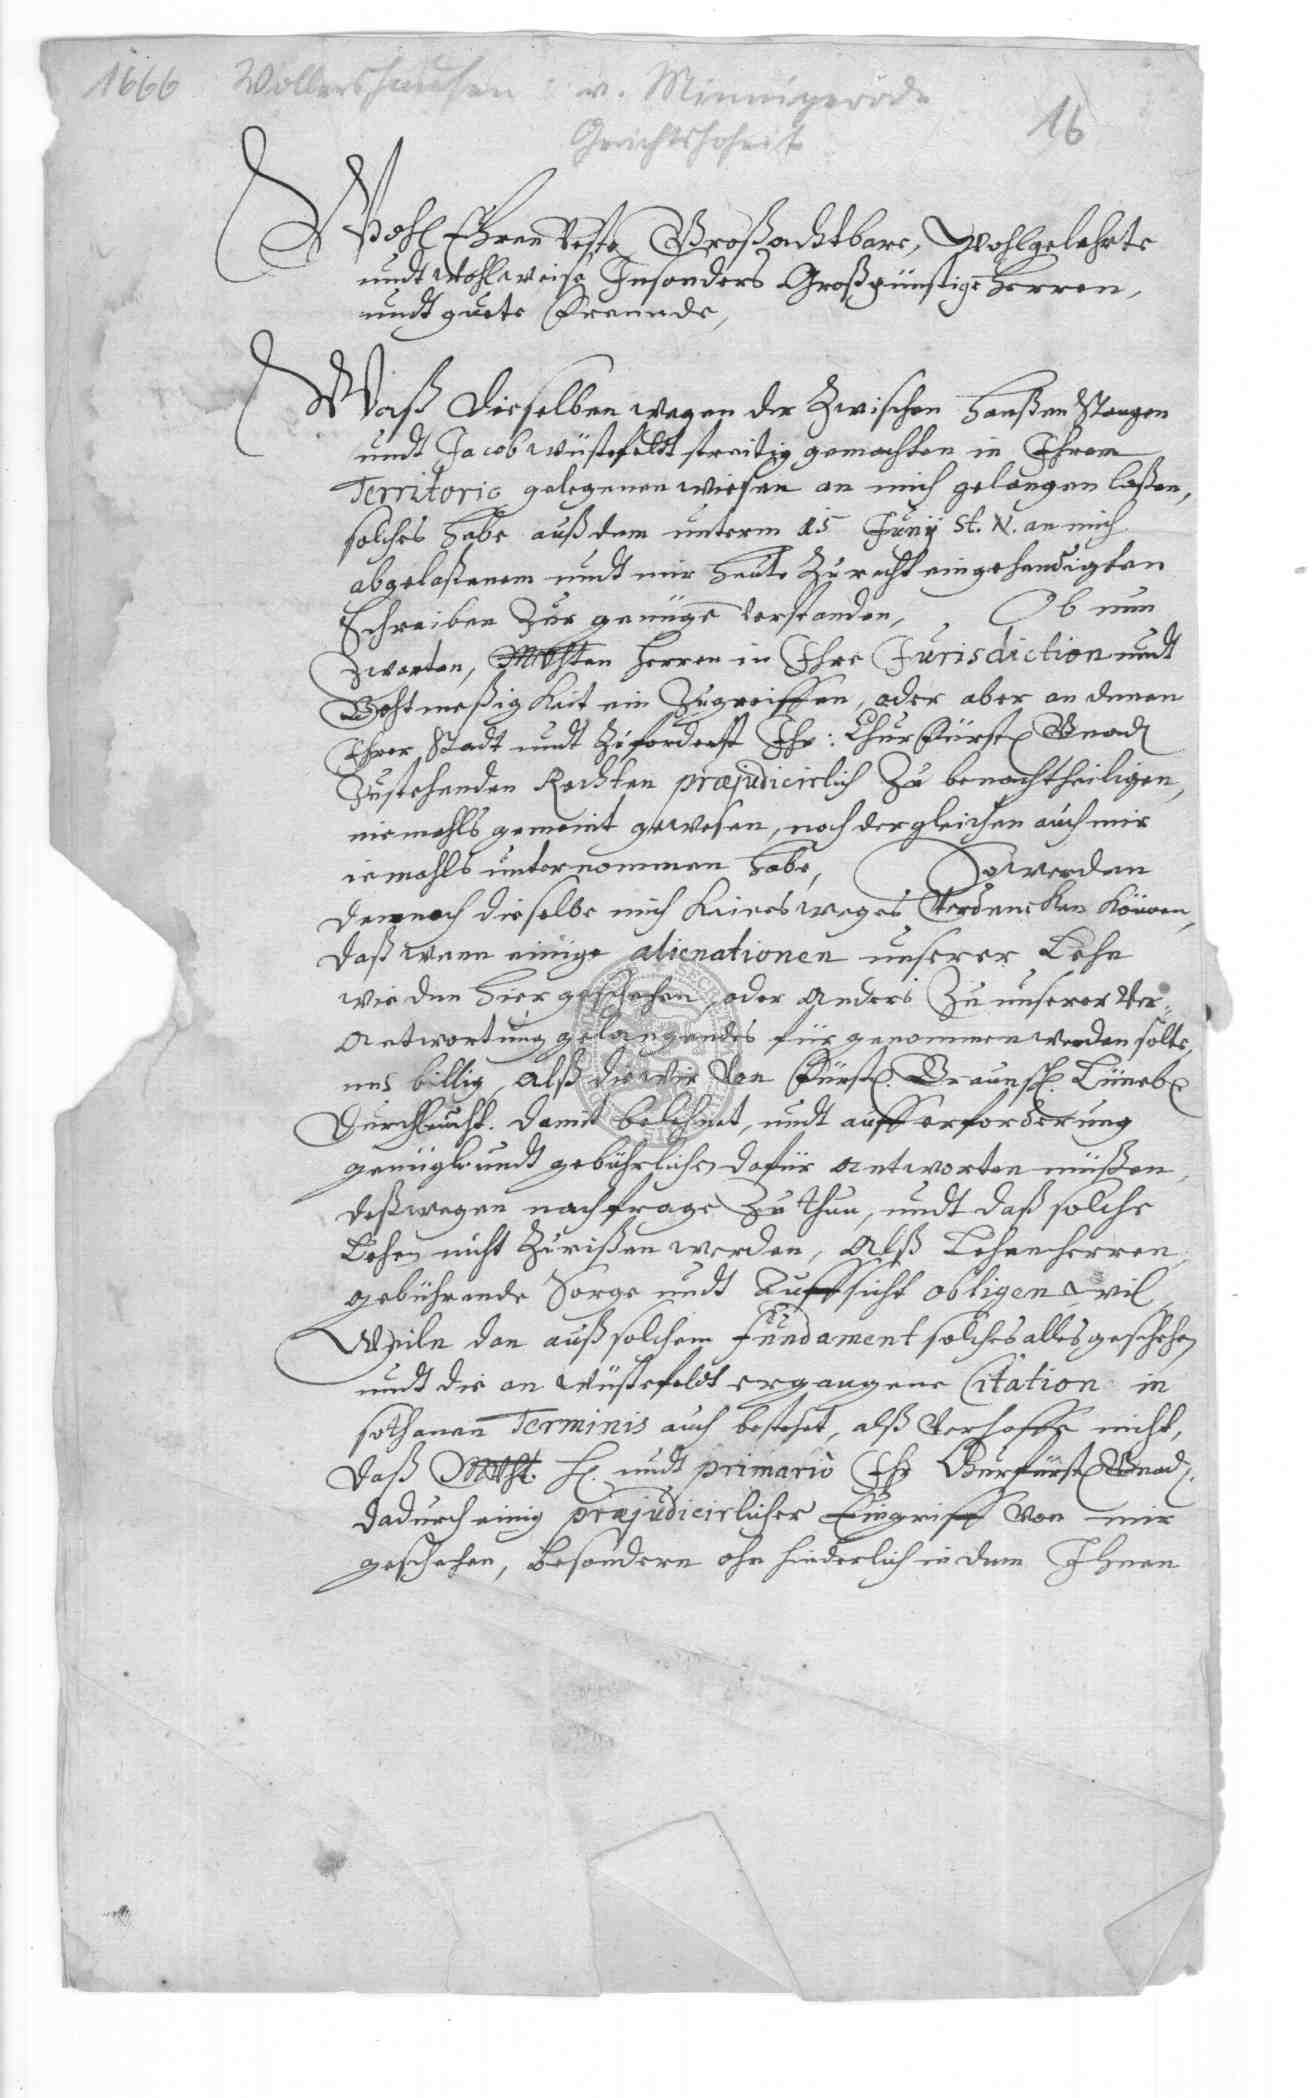 1666 Wollershausen : v. Minnigerode
Gerichtshoheit
16
Wohl Ehren Veste, Großachtbare, Wohlgelehrte
undt Wohlweise Insonders Großgünstige Herren,
undt guete Freunde,
Waß dieselben wegen der Zwischen Hanßen Stangen
undt Jacob Wüstefeldt streitig gemachten in Ihrem
Territorio gelegenen wiesen an mich gelangen laßen,
solches habe auß dem unterm 15 Junij St. N. an mich
abgelaßenem undt mir heute Zu recht eingehendigten
Schreiben Zur genüge verstanden, Ob nun
zwarten, Herren in Ihre Jurisdiction undt
Bothmeßigkeit ein Zugreiffen, oder aber an denen
Ihrer Stadt undt Zuforderst Ihr: ChurFürstl Gnad
Zustehenden Rechten præjudicirlich Zu benachtheiligen,
niemahls gemeint gewesen, noch dergleichen auch mir
iemahls unternommen habe, So werden
dennoch dieselbe mich keinesweges verdencken können,
daß wenn einige alienationen unserer Lehn
wie den hier geschehen, oder anders Zu unserer Ver-
antwortung gelangendes für genommen werden solte,
uns billig, alß die wir von Fürstl. Braunsch. Lüneb
Durchleucht. damit belehnet, undt auff erforderung
genüglundt gebührlich dafür antworten müßen,
deßwegen nachfrage Zu thun, undt daß solche
Lehen nicht Zurißen werden, alß Lehenherren
gebührende Sorge undt Auffsicht obligen wil
Weiln dan auß solchem fundament solches alles geschehen
undt die an Wüstefeldt ergangene Citation in
sothanen Terminis auch bestehet, alß verhoffe nicht,
daß H. undt primario Ihr Churfürstl Gnad.
dadurch einig præjudicirlicher Eingriff von mir
geschehen, besondern ohn hinderlich in dem Ihnen